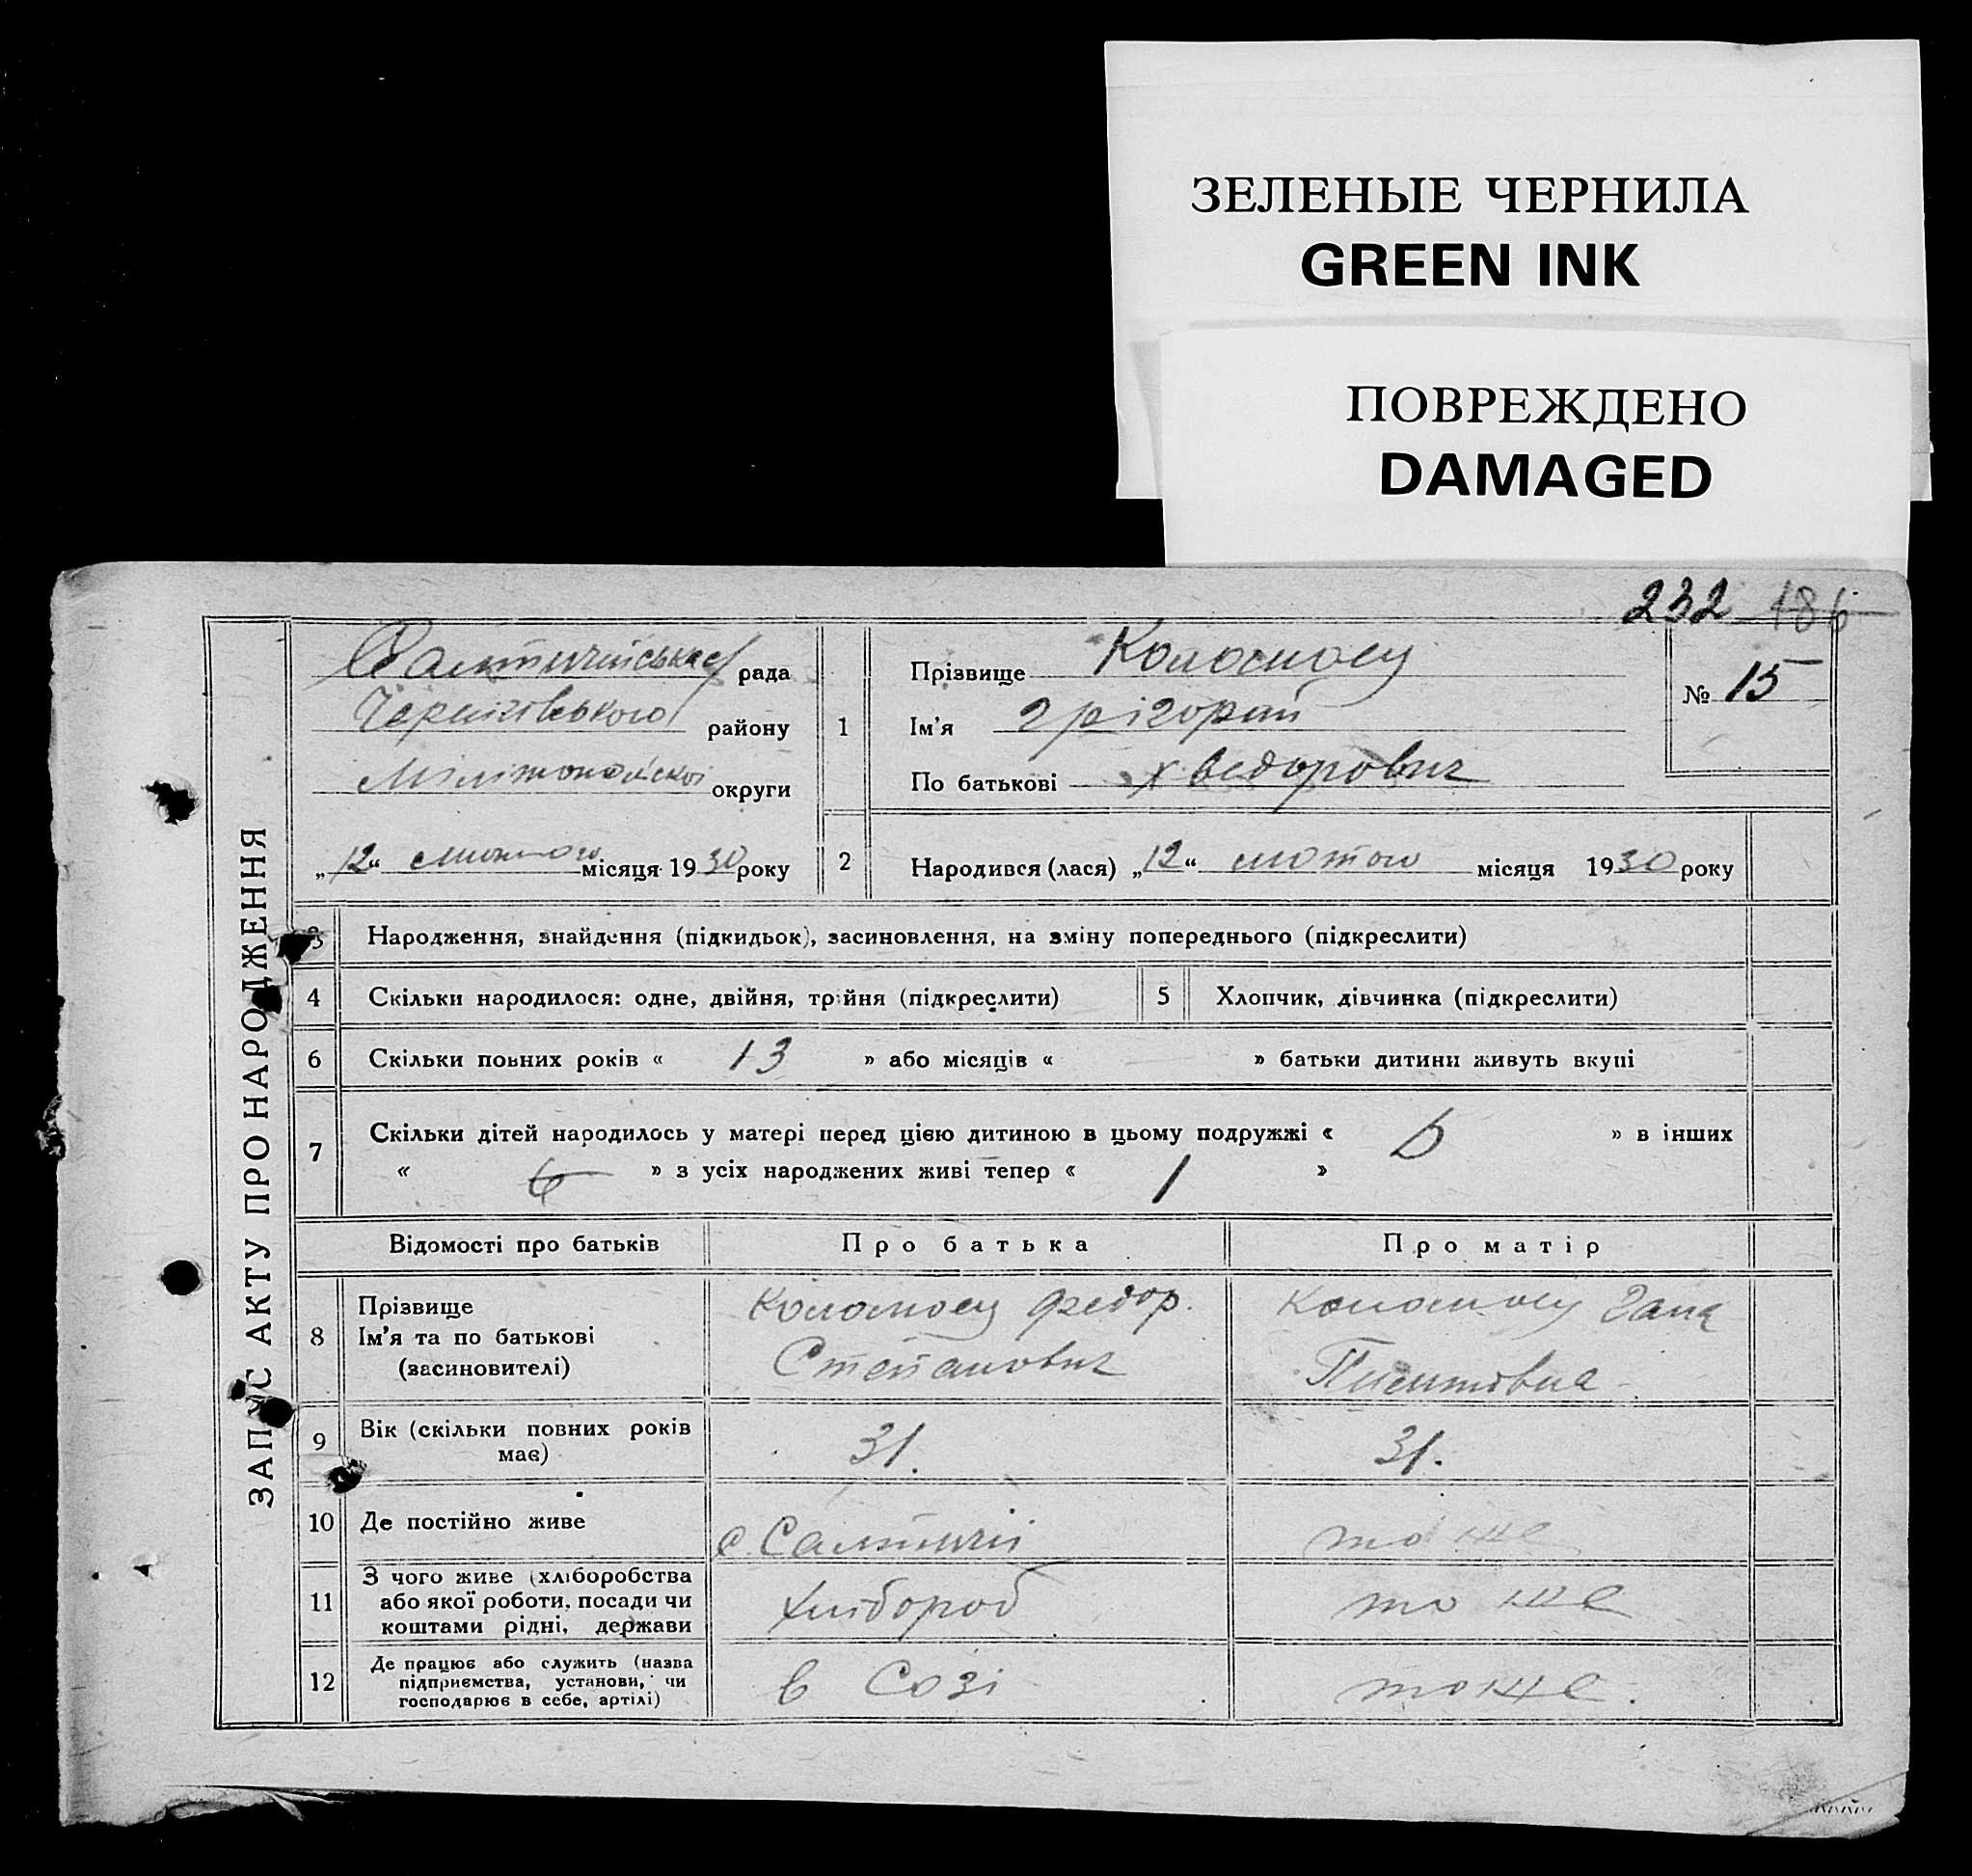 ЗЕЛЕНЫЕ ЧЕРНИЛА
GREEN INK
ПОВРЕЖДЕНО
DAMAGED
232 186
ЗАПИС АКТУ ПРО НАРОДЖЕННЯ
Салтичійська рада
Чернігівського району
округи
„12“ лютого місяця 1930 року
1
Прізвище
Ім'я Грігорій
По батькові Хведорович
№ 15
2 Народився (лася) „12“ лютого місяця 1930 року
3 Народження, знайдення (підкидьок), засиновлення, на зміну попереднього (підкреслити)
4 Скільки народилося: одне, двійня, трійня (підкреслити)
5 Хлопчик, дівчинка (підкреслити)
6 Скільки повних років « 13 » або місяців « » батьки дитини живуть вкупі
7 Скільки дітей народилось у матері перед цією дитиною в цьому подружжі « » в інших
« » з усіх народжених живі тепер « 1 »
Відомості про батьків Про батька Про матір
8 Прізвище
Ім'я та по батькові
(засиновителі)
Федор
Степанович
Гана
9 Вік (скільки повних років
має)
31. 31.
10 Де постійно живе с. Салтичії то же
11 З чого живе (хліборобства
або якої роботи, посади чи
коштами рідні, держави
Хлібороб то же
12 Де працює або служить (назва
підприємства, установи, чи
господарює в себе, артілі)
в Созі то же.